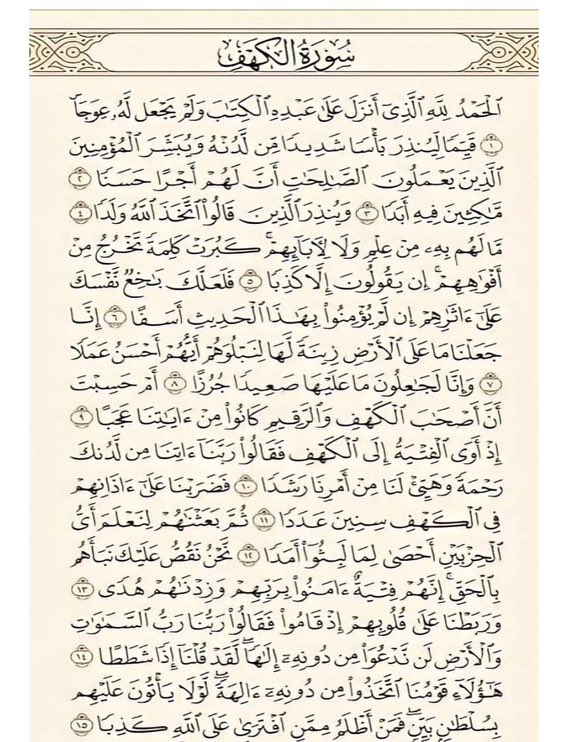 سُورَةُ الكَهْفِ
ٱلْحَمْدُ لِلَّهِ ٱلَّذِىٓ أَنزَلَ عَلَىٰ عَبْدِهِ ٱلْكِتَـٰبَ وَلَمْ يَجْعَل لَّهُۥ عِوَجَاۜ
١ قَيِّمًا لِّيُنذِرَ بَأْسًا شَدِيدًا مِّن لَّدُنْهُ وَيُبَشِّرَ ٱلْمُؤْمِنِينَ
ٱلَّذِينَ يَعْمَلُونَ ٱلصَّـٰلِحَـٰتِ أَنَّ لَهُمْ أَجْرًا حَسَنًا ٢
مَّـٰكِثِينَ فِيهِ أَبَدًا ٣ وَيُنذِرَ ٱلَّذِينَ قَالُوا۟ ٱتَّخَذَ ٱللَّهُ وَلَدًا ٤
مَّا لَهُم بِهِۦ مِنْ عِلْمٍ وَلَا لِـَٔابَآئِهِمْ ۚ كَبُرَتْ كَلِمَةً تَخْرُجُ مِنْ
أَفْوَٰهِهِمْ ۚ إِن يَقُولُونَ إِلَّا كَذِبًا ٥ فَلَعَلَّكَ بَـٰخِعٌ نَّفْسَكَ
عَلَىٰٓ ءَاثَـٰرِهِمْ إِن لَّمْ يُؤْمِنُوا۟ بِهَـٰذَا ٱلْحَدِيثِ أَسَفًا ٦ إِنَّا
جَعَلْنَا مَا عَلَى ٱلْأَرْضِ زِينَةً لَّهَا لِنَبْلُوَهُمْ أَيُّهُمْ أَحْسَنُ عَمَلًا
٧ وَإِنَّا لَجَـٰعِلُونَ مَا عَلَيْهَا صَعِيدًا جُرُزًا ٨ أَمْ حَسِبْتَ
أَنَّ أَصْحَـٰبَ ٱلْكَهْفِ وَٱلرَّقِيمِ كَانُوا۟ مِنْ ءَايَـٰتِنَا عَجَبًا ٩
إِذْ أَوَى ٱلْفِتْيَةُ إِلَى ٱلْكَهْفِ فَقَالُوا۟ رَبَّنَآ ءَاتِنَا مِن لَّدُنكَ
رَحْمَةً وَهَيِّئْ لَنَا مِنْ أَمْرِنَا رَشَدًا ١٠ فَضَرَبْنَا عَلَىٰٓ ءَاذَانِهِمْ
فِى ٱلْكَهْفِ سِنِينَ عَدَدًا ١١ ثُمَّ بَعَثْنَـٰهُمْ لِنَعْلَمَ أَىُّ
ٱلْحِزْبَيْنِ أَحْصَىٰ لِمَا لَبِثُوٓا۟ أَمَدًا ١٢ نَّحْنُ نَقُصُّ عَلَيْكَ نَبَأَهُم
بِٱلْحَقِّ ۚ إِنَّهُمْ فِتْيَةٌ ءَامَنُوا۟ بِرَبِّهِمْ وَزِدْنَـٰهُمْ هُدًى ١٣
وَرَبَطْنَا عَلَىٰ قُلُوبِهِمْ إِذْ قَامُوا۟ فَقَالُوا۟ رَبُّنَا رَبُّ ٱلسَّمَـٰوَٰتِ
وَٱلْأَرْضِ لَن نَّدْعُوَا۟ مِن دُونِهِۦٓ إِلَـٰهًا ۖ لَّقَدْ قُلْنَآ إِذًا شَطَطًا ١٤
هَـٰٓؤُلَآءِ قَوْمُنَا ٱتَّخَذُوا۟ مِن دُونِهِۦٓ ءَالِهَةً ۖ لَّوْلَا يَأْتُونَ عَلَيْهِم
بِسُلْطَـٰنٍۭ بَيِّنٍ ۖ فَمَنْ أَظْلَمُ مِمَّنِ ٱفْتَرَىٰ عَلَى ٱللَّهِ كَذِبًا ١٥